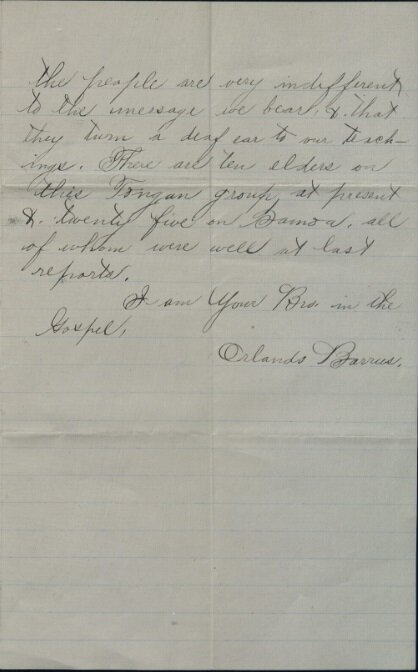 the people are very indifferent
to the meesage we bear, & that
they turn a deaf ear to our teach-
ings. There are ten elders on
this Tongan group, at present
&. twenty five on Samoa. all
of whom were well at last
reports.
I am Your Bro. in the
Gospel,
Orlando Barrus.